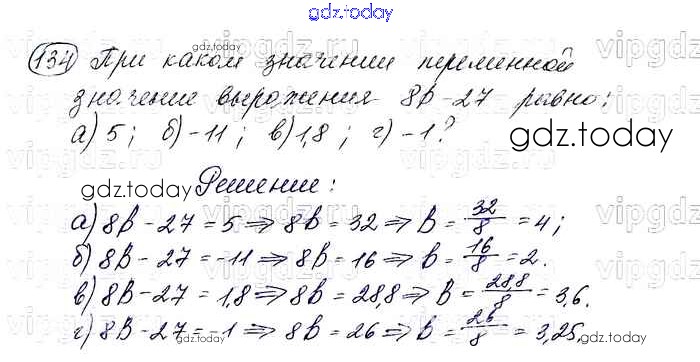 gdz.today
134 При каком значении переменной
значение выражения 8b-27 равно:
а) 5; б) -11; в) 1,8; г) -1?
gdz.today
Решение:
а) 8b-27=5⇒8b=32⇒b=32/8=4;
б) 8b-27=-11⇒8b=16⇒b=16/8=2.
в) 8b-27=1,8⇒8b=28,8⇒b=28,8/8=3,6.
г) 8b-27=-1⇒8b=26⇒b=26/8=3,25.
gdz.today
gdz.today
gdz.today
gdz.today
gdz.today